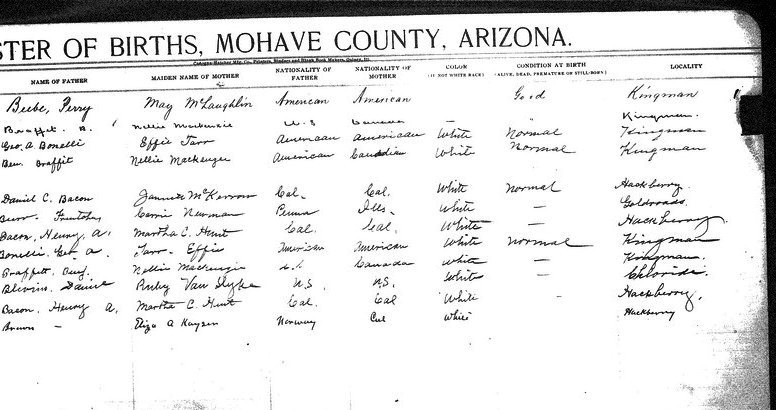 STER OF BIRTHS, MOHAVE COUNTY, ARIZONA.
NAME OF FATHER MAIDEN NAME OF MOTHER NATIONALITY OF FATHER NATIONALITY OF MOTHER COLOR (IF NOT WHITE RACE) CONDITION AT BIRTH (ALIVE, DEAD, PREMATURE OR STILL-BORN) LOCALITY
Beebe, Perry May McLaughlin American American Good Kingman
Nellie Mackenzie U.S — " Kingman.
Geo. A Bonelli Effie Tarr American American White Normal Kingman
Ben. Graffit Nellie Mackenzie American Canadian White Normal Kingman
Daniel C. Bacon McKerrow Cal. Cal. White Normal Hackberry.
Carrie Newman Penna Ills. White — Goldroads.
Bacon, Henry A. Martha C. Hunt Cal. Cal. White — Hackberry.
Bonelli, Geo. A. Tarr - Effie American American White Normal Kingman
Nellie Mackenzie Canada White — Kingman.
Blevins, Daniel Ruby Van Slyke U.S. U.S. White — Chloride.
Bacon, Henry A. Martha C. Hunt Cal. Cal White Hackberry.
Brown — Eliza A Kayser Norway Cal White Hackberry